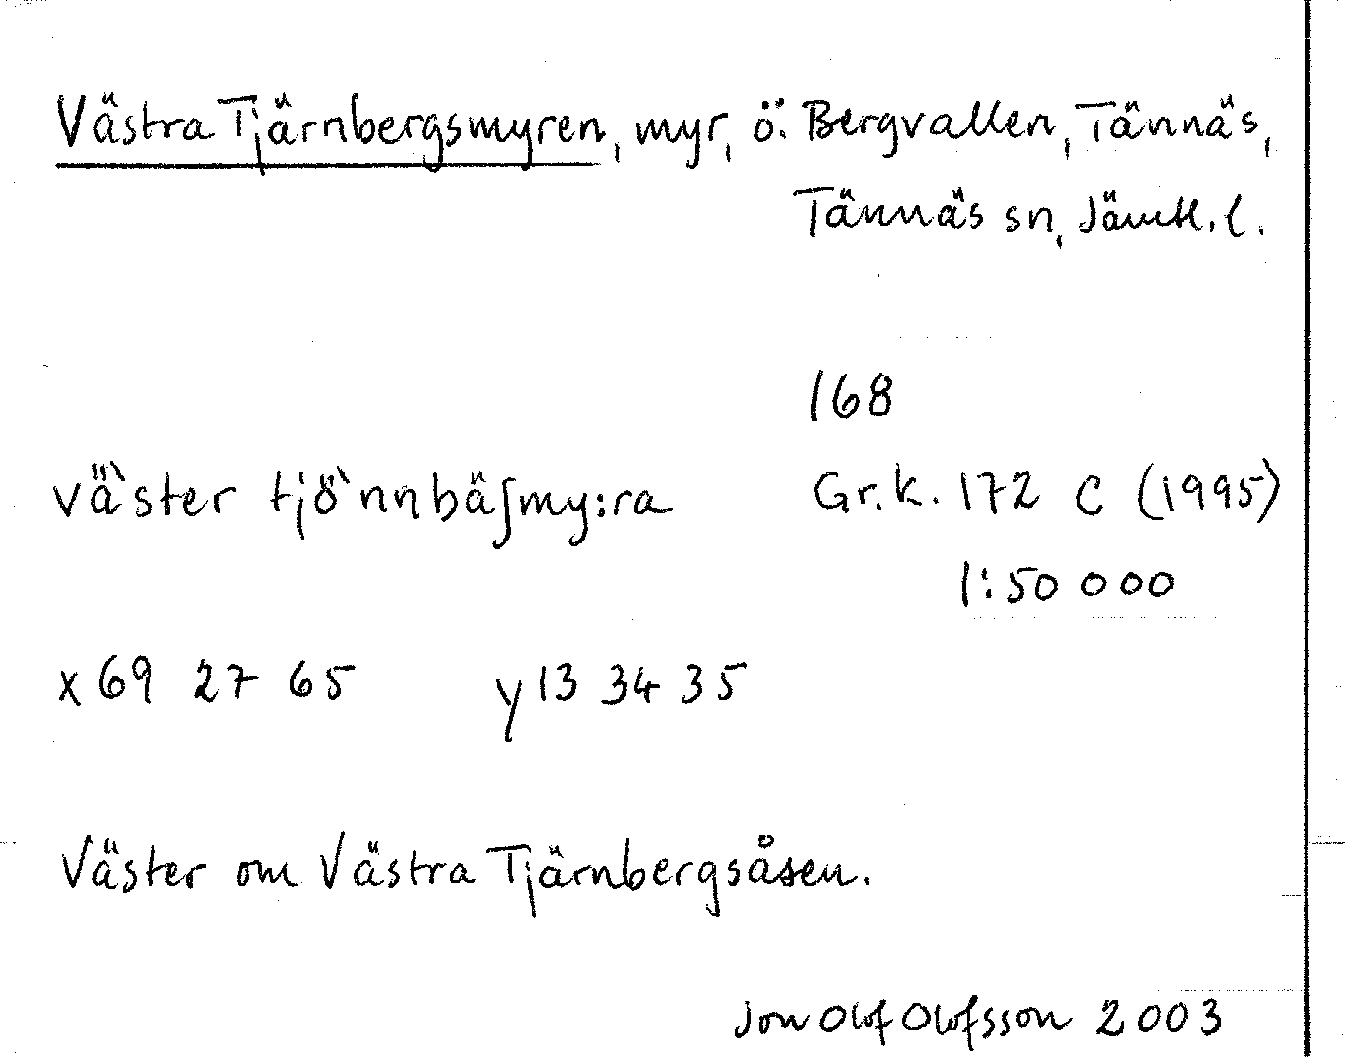 Västra Tjärnbergsmyren, myr, ö. Bergvallen, Tännäs,
Tännäs sn, Jämtl. l.
168
vä`ster tjö`nnbäʃmy:ra Gr.k. 172 C (1995)
1:50 000
x 69 27 65 y 13 34 35
Väster om Västra Tjärnbergsåsen.
Jon Olof Olofsson 2003